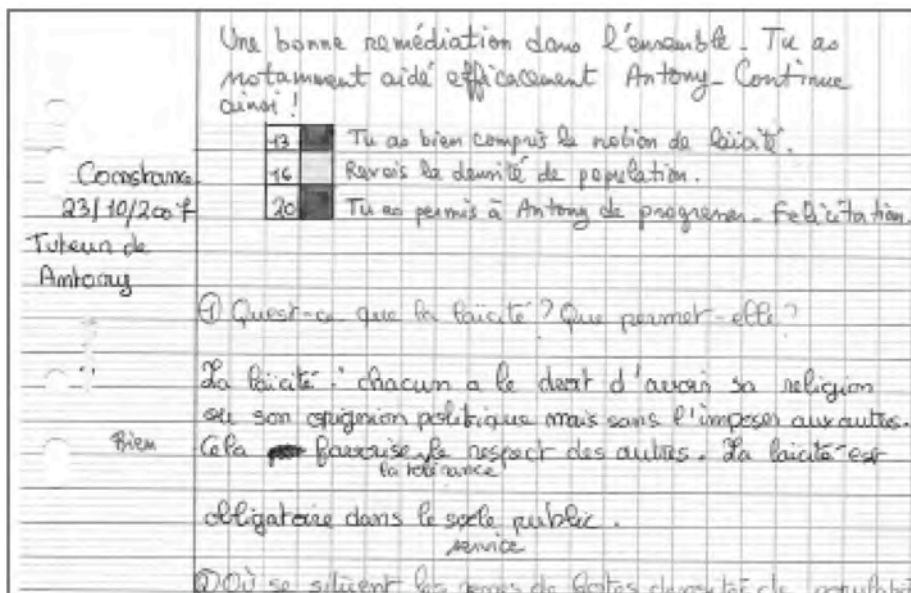 Une bonne remédiation dans l'ensemble. Tu as
notamment aidé efficacement Antony. Continue
ainsi !
13 Tu as bien compris la notion de laïcité.
16 Revois la densité de population.
20 Tu as permis à Antony de progresser. Félicitation.
Constance
23/10/2007
Tuteur de
Antony
① Quest-ce que la laïcité ? Que permet-elle ?
La laïcité : chacun a le droit d'avoir sa religion
ou son opignion politique mais sans l'imposer aux autres.
Bien
Cela favorise le respect des autres. La laïcité est
la tolérance
obligatoire dans le socle public.
service
② Où se situent les zones de fortes densités de